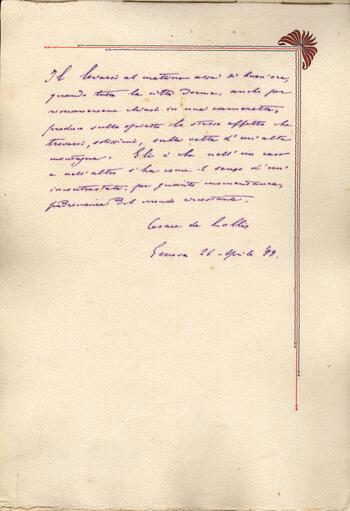 Il levarsi al mattino assai di buon'ora,
quando tutta la città dorme, anche per
rimanersene chiusi in una cameretta,
produce sullo spirito lo stesso effetto che
trovarsi, solissimi, sulla vetta d'un'alta
montagna. Egli è che nell'un caso
e nell'altro s'ha come il senso d'un'
incontrastata, per quanto momentanea,
padronanza del mondo circostante.
Cesare de Lollis
Genova 26 Aprile '99.